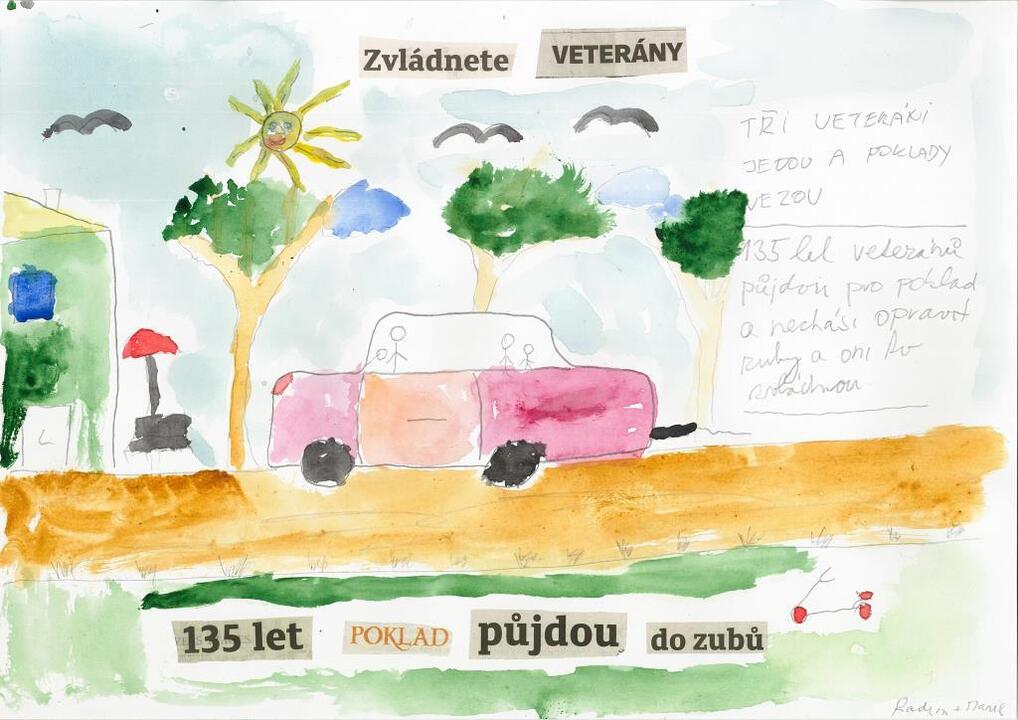 Zvládnete VETERÁNY
TŘI VETERÁNI
JEDOU A POKLADY
VEZOU
135 let veteránů
půjdou pro poklad
a nechási opravit
zuby a oni to
135 let POKLAD půjdou do zubů
Radim + Marie